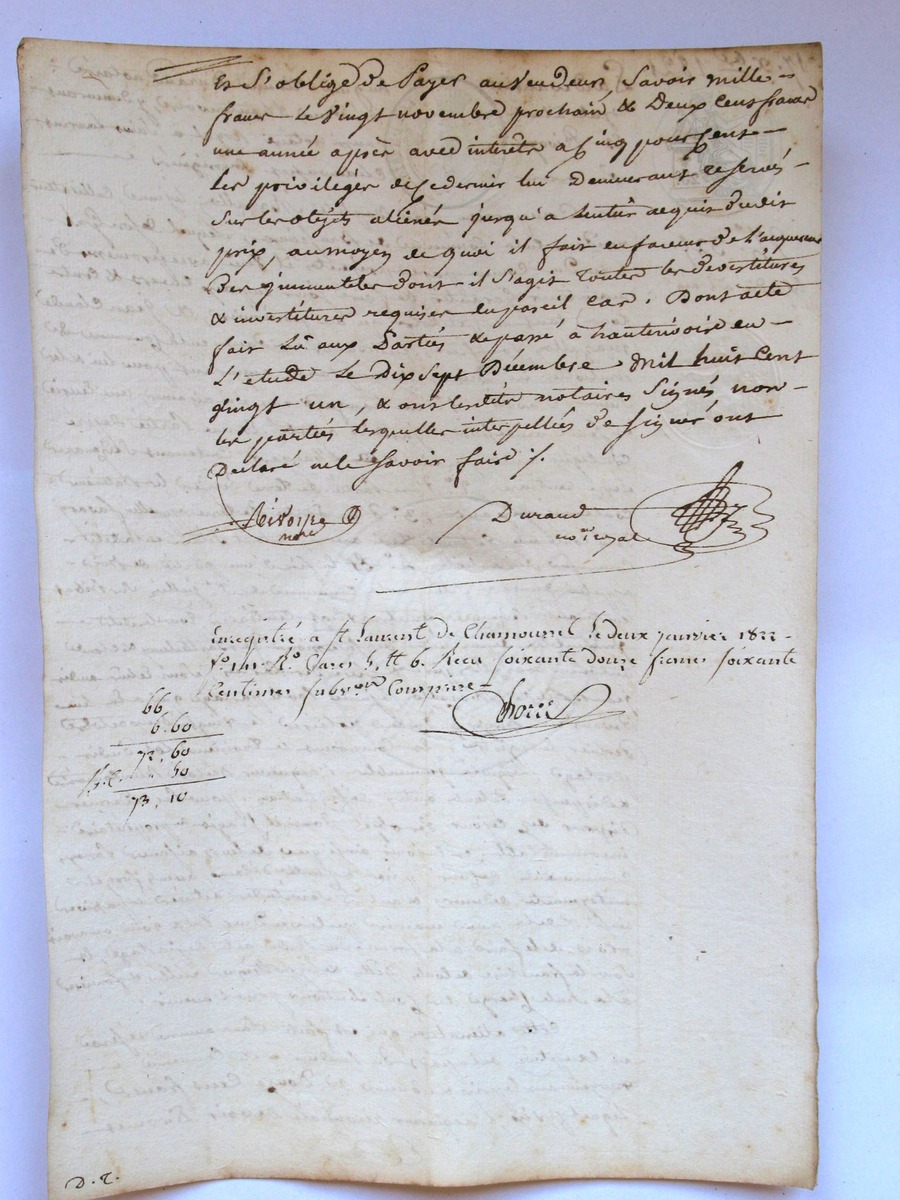 Et s'oblige de Payer au Vendeur, Savoir mille
francs le Vingt novembre prochain & Deux Cent francs
une année après avec intérêts a Cinq pour Cent
les privilèges de Ce dernier lui Demeurant reservés
Sur les objets aliénés jusqu'a l'entier acquit du dit
prix, au moyen de quoi il fait en faveur de l'acquereur
Des immeubles dont il s'agit toutes les devestitures
& investitures requises en pareil Cas. Dont acte
fait Lu aux Parties & passé a hauterivoire en
L'etude Le Dix Sept Décembre Mil huit Cent
Vingt un, & ont les dits notaires Signés non
les parties lesquelles interpellées de signer ont
Declaré ne le Savoir faire ./.
nore
Durand
nore royal
Enregistré a St Laurent de Chamousset le deux janvier 1822
Vo Cases 5 et 6. Recu soixante douze francs soixante
Centimes subvon Comprise
66
6.60
72.60
50
73.10
D. R.